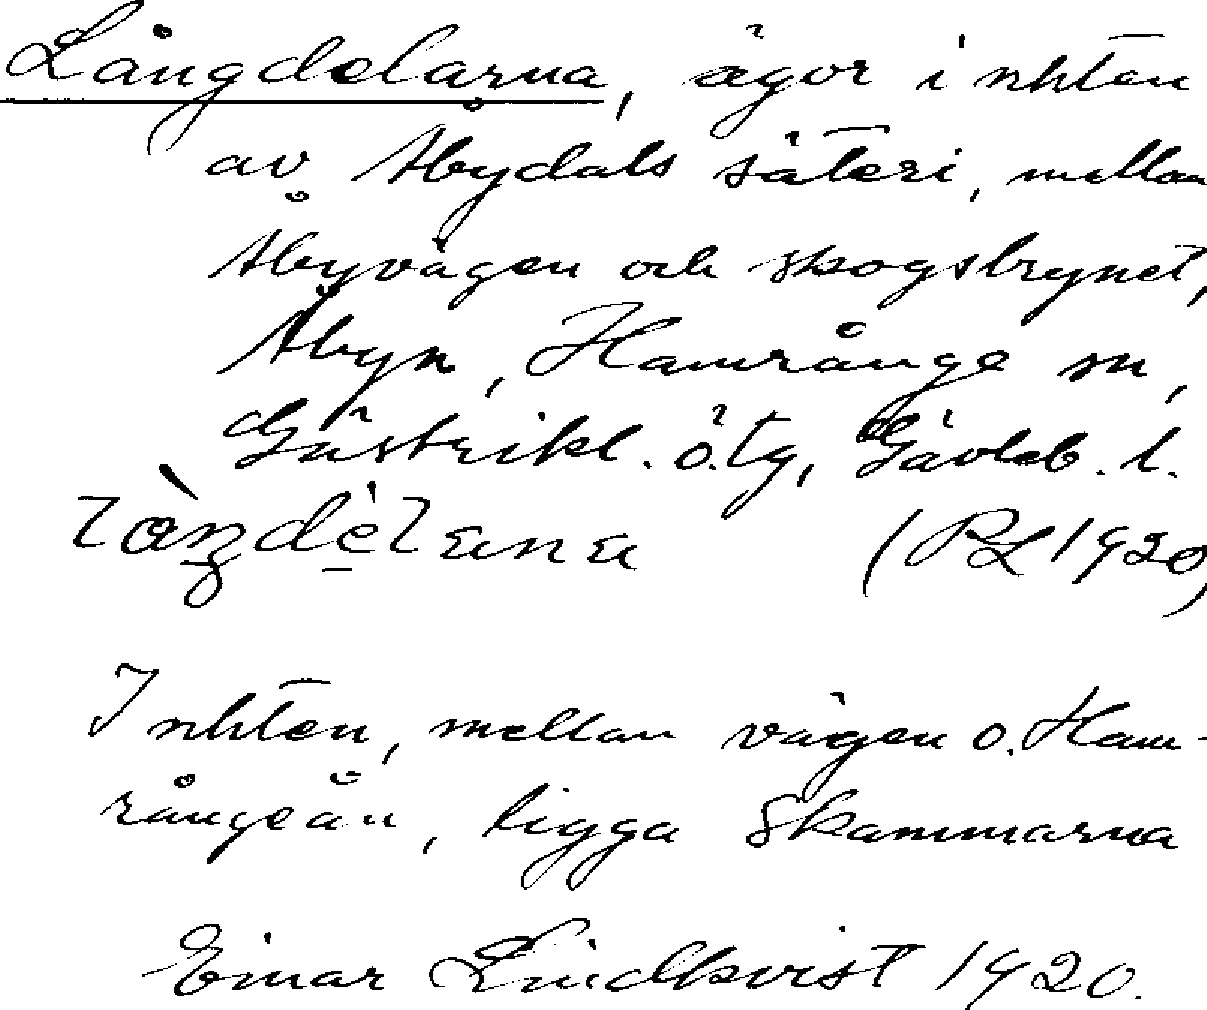 Långdelarna, ägor i nhten
av Åbydals säteri, mellan
Åbyvägen och skogsbrynet,
Åbyn, Hamrånge sn,
Gästrikl. ö. tg, Gävleb. l.
(RL 1920)
I nhten, mellan vägen o. Ham-
rångeån, ligga Skammarna
Einar Lindkvist 1920.